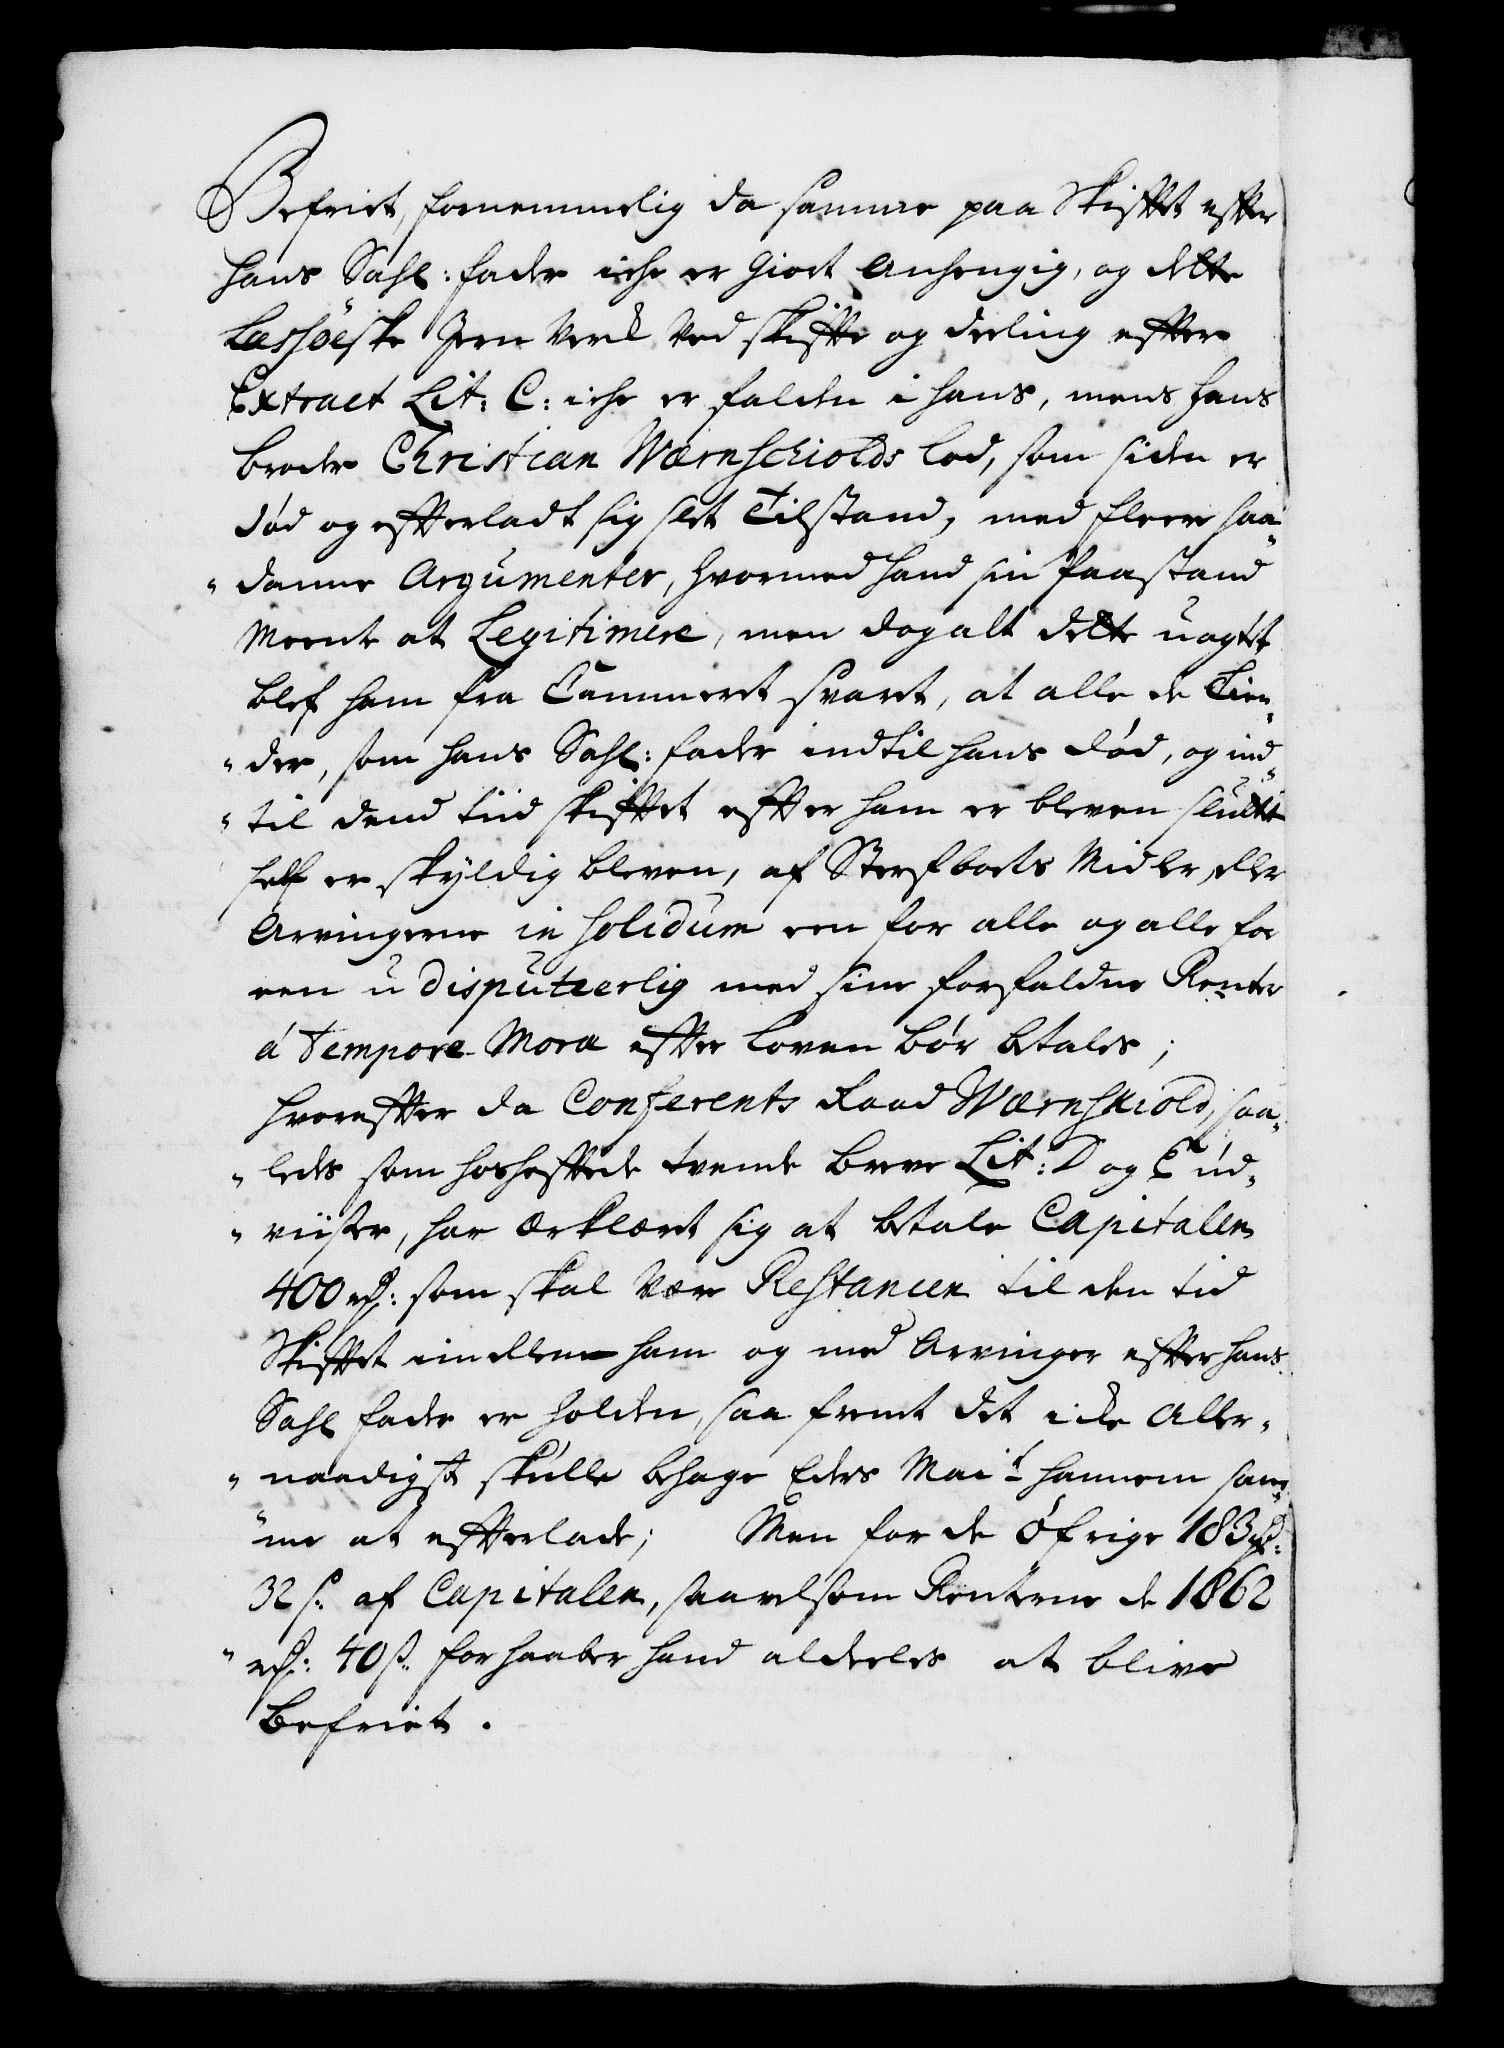 Befriet, fornemmelig da samme paa Skifftet effter
hans Sahl: fader iche er Giort Anhengig, og dette
Lassøeske Jern Verck Ved skiffte og deeling effter
Extract Lit: C: iche er falden i hans, mens hans
broder Christian Wærnschiolds lod, som siden er
død og effterladt sig slet Tilstand, med fleere saa„
„danne Argumenter, hvormed hand sin Paastand
Meente at Legitimere, men dog alt dette uagtet
blef ham fra Cammeret svaret, at alle de Tien„
„der, som hans Sahl: fader indtil hans død, og ind„
„til dend tiid skifftet effter ham er bleven sluttet
self er skyldig bleven, af Sterfboets Midler, eller
Arvingerne in solidum een for alle og alle for
een u disputeerlig med sine forfaldne Renter
á Tempore Mora effter Loven bør betales;
hvoreffter da Conferents Raad Wærnskiold, saa„
„ledes som hoshefftede tvende breve Lit: D og E ud„
„viiser, har Ærklæret sig at betale Capitalen
400 rd: som skal være Restancen til den tid
Skifftet imellem ham og med Arvinger effter hans
Sahl fader er holden, saa fremt det icke Aller„
„naadigst skulle behage Eders Mait hannem sam„
„me at effterlade; Men for de øfrige 183 rd:
32 s. af Capitalen, saavelsom Renterne de 1862
„rd: 40 s. forhaaber hand aldeeles at blive
befriet.